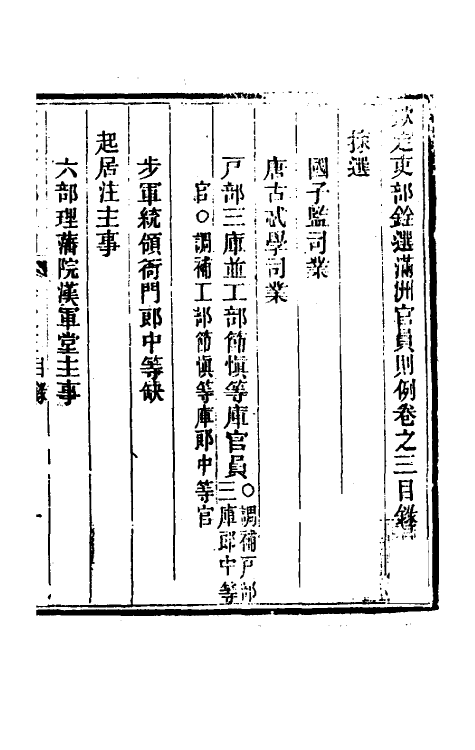 欽定吏部銓選滿洲官員則例卷之三目錄
揀選
國子監司業
唐古忒學司業
戶部三庫並工部節愼等庫官員○調補戶部三庫郎中等
官○調補工部節愼等庫郎中等官
步軍統領衙門郎中等缺
起居注主事
六部理藩院漢軍堂主事